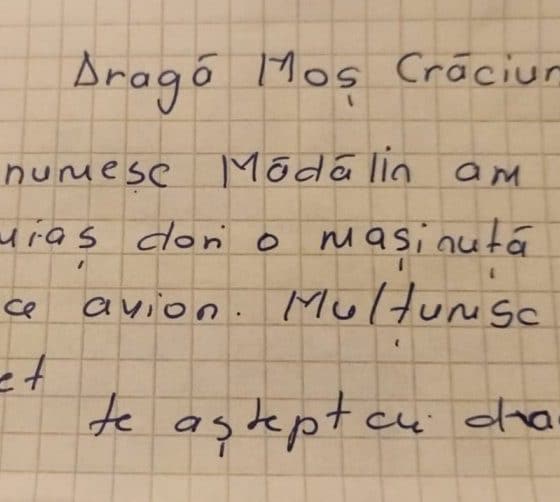 Dragă Moș Crăciun
numesc Mădălin am
iaș dori o mașinuță
ce avion. Mulțumsc
et
te aștept cu dra